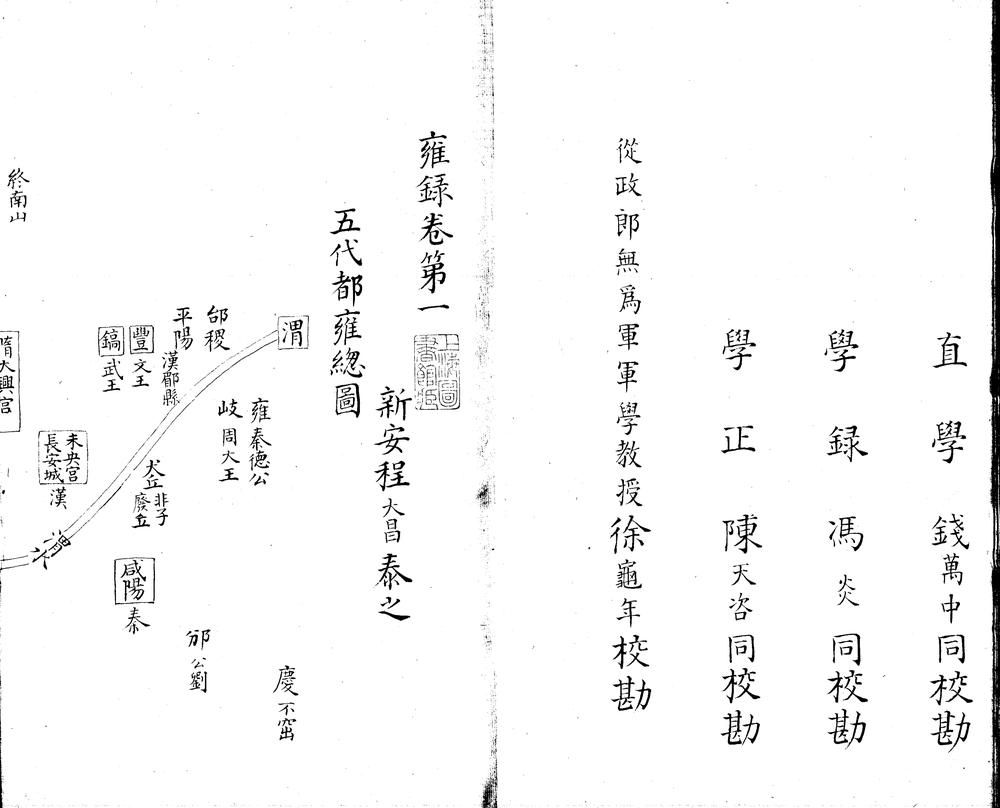 直學錢萬中同校勘
學録馮炎同校勘
學正陳天咨同校勘
從政郎無爲軍軍學教授徐龜年校勘
雍録卷第一
新安程大昌泰之
五代都雍緫圖
渭
慶不窋
雍秦德公
岐周大王
邰稷
平陽
漢郿縣
邠公劉
犬丘非子
廢丘
豐文王
鎬武王
咸陽
秦
未央宮
長安城
漢
渭水
隋大興宮
終南山